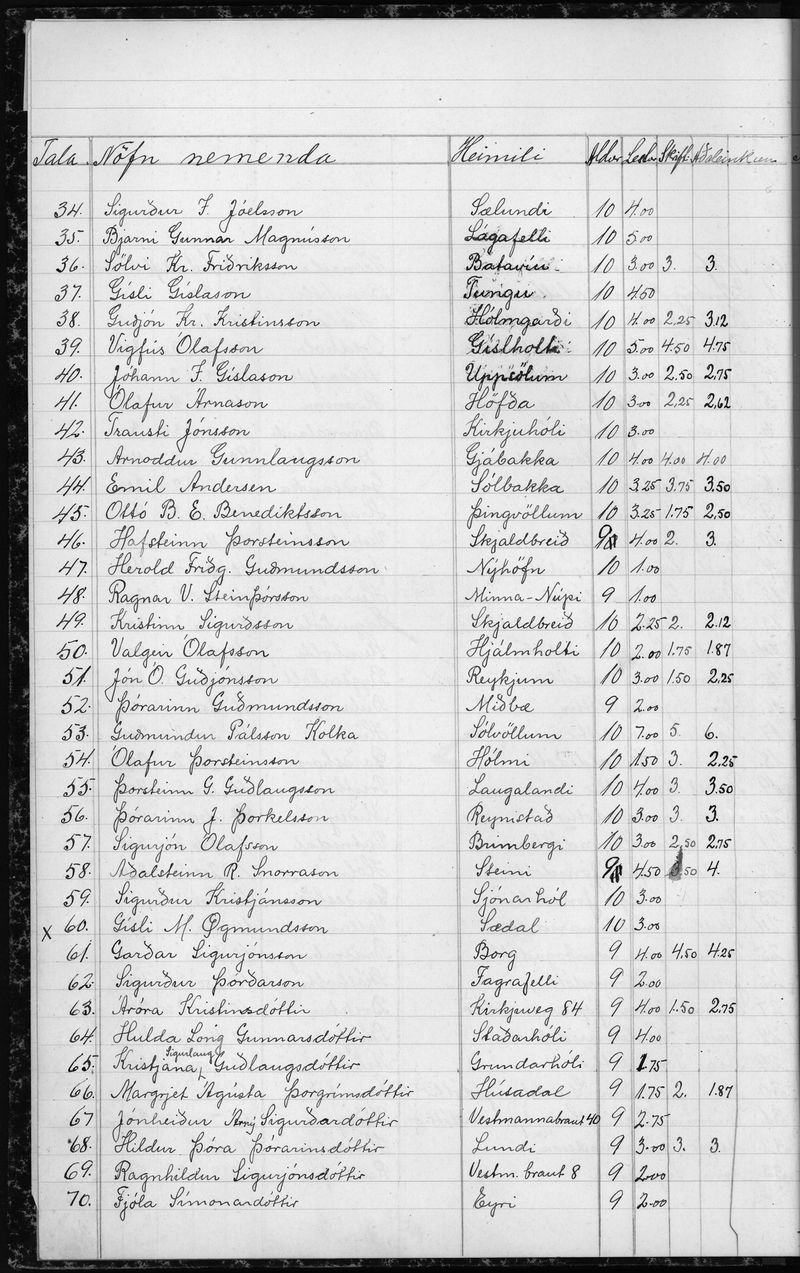 Tala. Nöfn nemenda Heimili Aldur Lestur Skrift Aðaleinkunn
34. Sigurður F. Jóelsson Sælundi 10 4.00
35. Bjarni Gunnar Magnússon Lágafelli 10 5.00
36. Sölvi Kr. Friðriksson Batavíu 10 3.00 3. 3.
37. Gísli Gíslason Tungu 10 4.50
38. Guðjón Kr. Kristinsson Hólmgarði 10 4.00 2.25 3.12
39. Vigfús Ólafsson Gíslholti 10 5.00 4.50 4.75
40. Jóhann F. Gíslason Uppsölum 10 3.00 2.50 2.75
41. Ólafur Árnason Höfða 10 3.00 2.25 2.62
42. Trausti Jónsson Kirkjuhóli 10 3.00
43. Arnoddur Gunnlaugsson Gjábakka 10 4.00 4.00 4.00
44. Emil Andersen Sólbakka 10 3.25 3.75 3.50
45. Ottó B. E. Benediktsson Þingvöllum 10 3.25 1.75 2.50
46. Hafsteinn Þorsteinsson Skjaldbreið 9 4.00 2. 3.
47. Herold Friðg. Guðmundsson Nýhöfn 10 1.00
48. Ragnar V. Steinþórsson Minna-Núpi 9 1.00
49. Kristinn Sigurðsson Skjaldbreið 10 2.25 2. 2.12
50. Valgeir Ólafsson Hjálmholti 10 2.00 1.75 1.87
51. Jón Ó. Guðjónsson Reykjum 10 3.00 1.50 2.25
52. Þórarinn Guðmundsson Miðbæ 9 2.00
53. Guðmundur Pálsson Kolka Sólvöllum 10 7.00 5. 6.
54. Ólafur Þorsteinsson Hólmi 10 1.50 3. 2.25
55. Þorsteinn G. Guðlaugsson Laugalandi 10 4.00 3. 3.50
56. Þórarinn J. Þorkelsson Reynistað 10 3.00 3. 3.
57. Sigurjón Ólafsson Brimbergi 10 3.00 2.50 2.75
58. Aðalsteinn R. Snorrason Steini 9 4.50 3.50 4.
59. Sigurður Kristjánsson Sjónarhól 10 3.00
x 60. Gísli M. Øgmundsson Sædal 10 3.00
61. Garðar Sigurjónsson Borg 9 4.00 4.50 4.25
62. Sigurður Þórðarson Fagrafelli 9 2.00
63. Aróra Kristinsdóttir Kirkjuveg 84 9 4.00 1.50 2.75
64. Hulda Long Gunnarsdóttir Staðarhóli 9 4.00
65. Kristjana Sigurlaug Guðlaugsdóttir Grundarhóli 9 1.75
66. Margrjet Ágústa Þorgrímsdóttir Húsadal 9 1.75 2. 1.87
67 Jónheiður Árný Sigurðardóttir Vestmannabraut 40 9 2.75
68. Hildur Þóra Þórarinsdóttir Lundi 9 3.00 3. 3.
69. Ragnhildur Sigurjónsdóttir Vestm.braut 8 9 2.00
70. Fjóla Símonardóttir Eyri 9 2.00